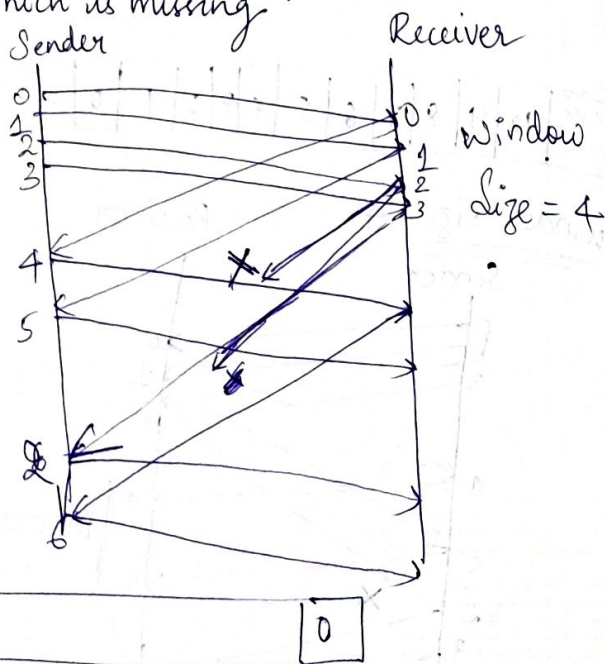 which is missing
Sender Receiver
0
1
2
3
0
1
2
3
Window
Size = 4
4
5
2
6
0